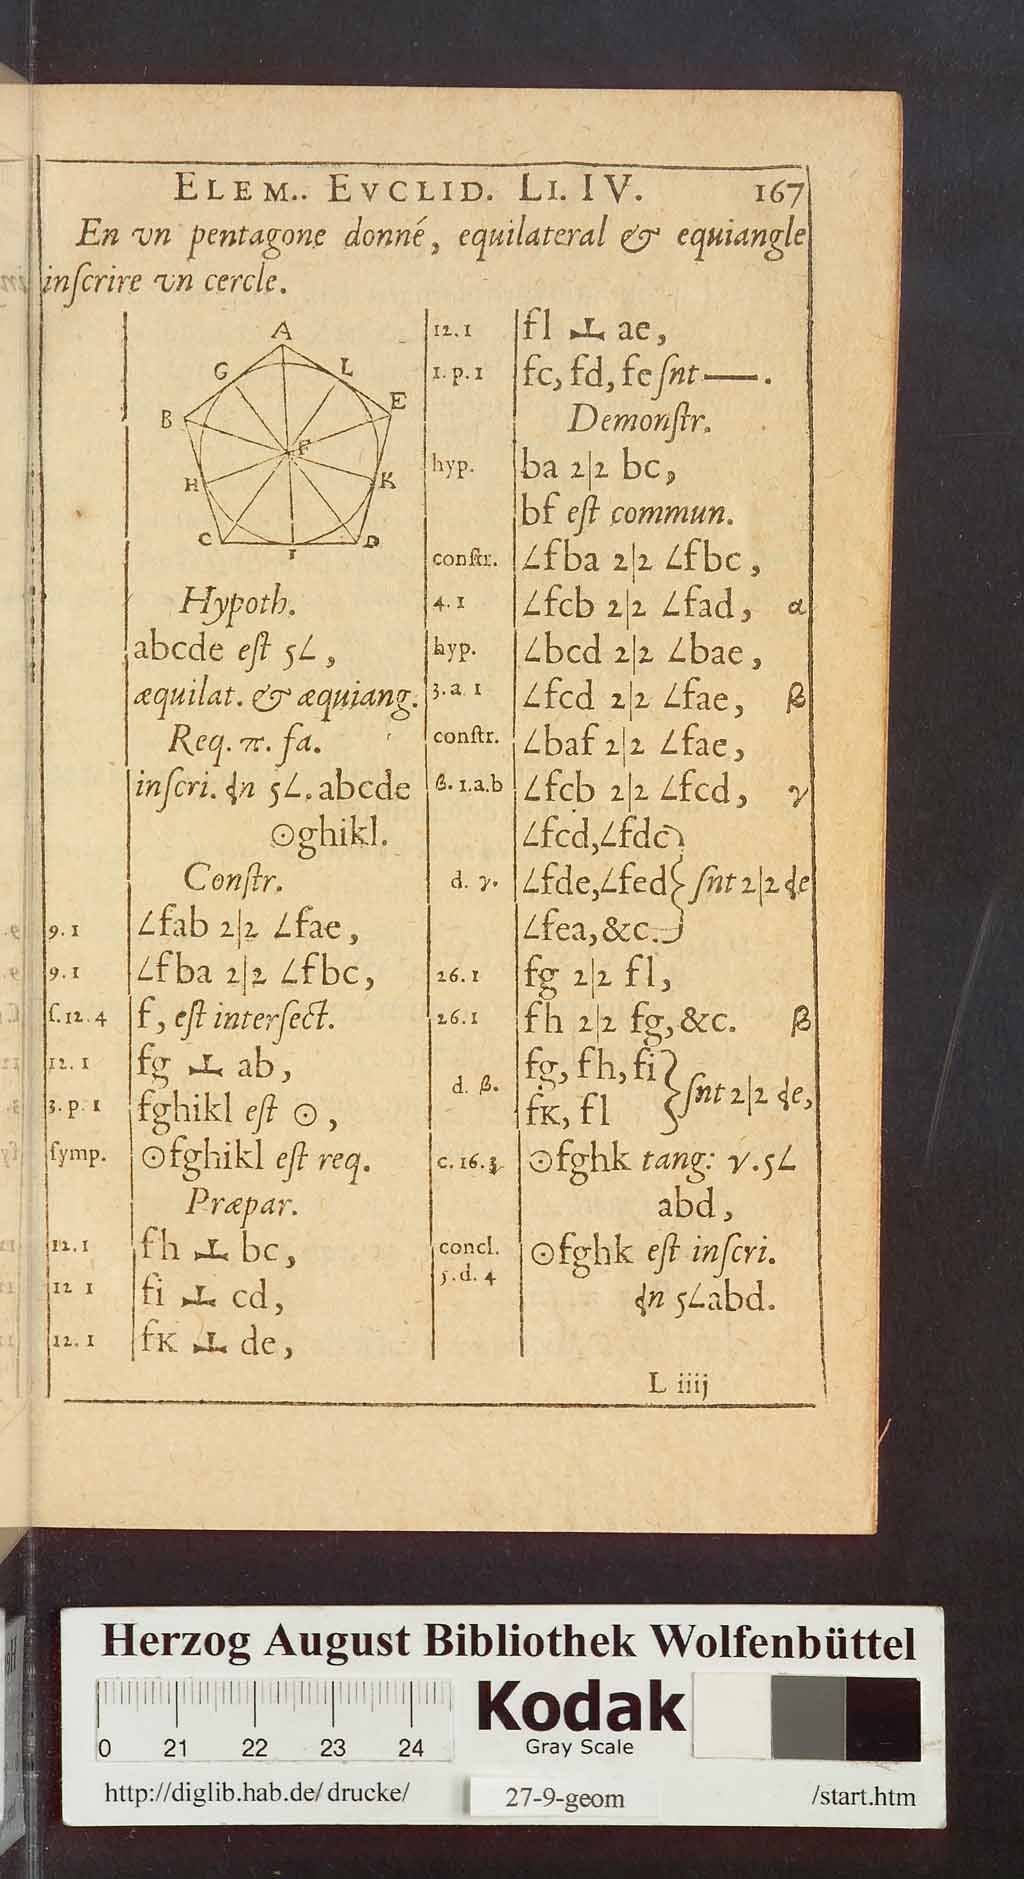 ELEM.. EVCLID. LI. IV. 167
En vn pentagone donné, equilateral & equiangle
inſcrire vn cercle.
A
G L
B E
F
H K
C D
I
Hypoth.
abcde eſt 5∠,
æquilat. & æquiang.
Req. π. fa.
inſcri. ɖn 5∠. abcde
⊙ghikl.
Conſtr.
9. 1 ∠fab 2|2 ∠fae,
9. 1 ∠fba 2|2 ∠fbc,
ſ. 12. 4 f, eſt interſect.
12. 1 fg ⊥ ab,
3. p. 1 fghikl eſt ⊙,
ſymp. ⊙fghikl eſt req.
Præpar.
12. 1 fh ⊥ bc,
12 1 fi ⊥ cd,
12. 1 fK ⊥ de,
12. 1 fl ⊥ ae,
1. p. 1 fc, fd, fe ſnt —.
Demonſtr.
hyp. ba 2|2 bc,
bf eſt commun.
conſtr. ∠fba 2|2 ∠fbc,
4. 1 ∠fcb 2|2 ∠fad, α
hyp. ∠bcd 2|2 ∠bae,
3. a 1 ∠fcd 2|2 ∠fae, β
conſtr. ∠baf 2|2 ∠fae,
β. 1. a. b ∠fcb 2|2 ∠fcd, γ
∠fcd, ∠fdc
d. γ. ∠fde, ∠fed} ſnt 2|2 ɖe
∠fea, &c.
26. 1 fg 2|2 fl,
26. 1 fh 2|2 fg, &c. β
fg, fh, fi
d. β. fK, fl } ſnt 2|2 ɖe,
c. 16. 3 ⊙fghk tang: γ. 5∠
abd,
concl. ⊙fghk eſt inſcri.
5. d. 4
ɖn 5∠abd.
L iiij
Herzog August Bibliothek Wolfenbüttel
Kodak
Gray Scale
0 21 22 23 24
http://diglib.hab.de/drucke/ 27-9-geom /start.htm